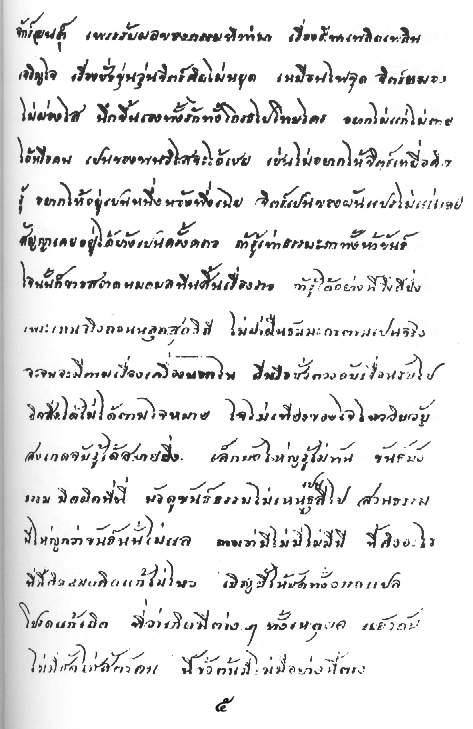 เพราะรับผลของกรรมที่ทำมา เรื่องรักเพลิดเพลิน
เจริญใจ เรื่องชังขุ่นวุ่นจิตร์คิดไม่หยุด เหมือนไฟจุด จิตร์หมอง
ไม่ผ่องใส นึกขึ้นเองทั้งรักทั้งโกรธไปโทษใคร อยากไม่แก่ไม่ตาย
ได้หรือคน เป็นของพ้นวิไสจะได้เชย เช่นไม่อยากให้จิตร์เที่ยวคิด
รู้ อยากให้อยู่เป็นหนึ่งหวังพึ่งเฉย จิตร์เป็นของผันแปรไม่แน่เลย
สัญญาเคยอยู่ได้บ้างเป็นครั้งคราว ถ้ารู้เท่าธรรมดาทั้งห้าขันธ์
ใจนั้นก็ขาวสอาดหมดมลทินสิ้นเรื่องราว ถ้ารู้ได้อย่างนี้จึงดียิ่ง
เพราะเห็นจริงถอนหลุดสุดวิถี ไม่ฝ่าฝืนธรรมดาตามเป็นจริง
จะจนจะมีตามเรื่องเครื่องนอกใน ดีหรือชั่วต้องดับเลื่อนลับไป
ยึดสิ่งใดไม่ได้ตามใจหมาย ใจไม่เที่ยงของใจไหววิบวับ
สังเกตจับรู้ได้สบายยิ่ง เล็กบังใหญ่รู้ไม่ทัน ขันธ์บัง
ธรรม มิดผิดที่นี่ มัวดูขันธ์ธรรมไม่เห็นเป็นธุลีไป ส่วนธรรม
มีใหญ่กว่าขันธ์นั้นไม่แล ถามว่ามีไม่มีไม่มีมี นี้คืออะไร
ทีนี้ติดหมดคิดแก้ไม่ไหว เชิญชี้ให้ชัดทั้งอรรถแปล
โปรดแก้เถิด ที่ว่าเกิดมีต่าง ๆ ทั้งเหตุผล แล้วดับ
ไม่มีชัดใช่สัตว์คน นี้ข้อต้นมีไม่มีอย่างนี้ตรง
๕